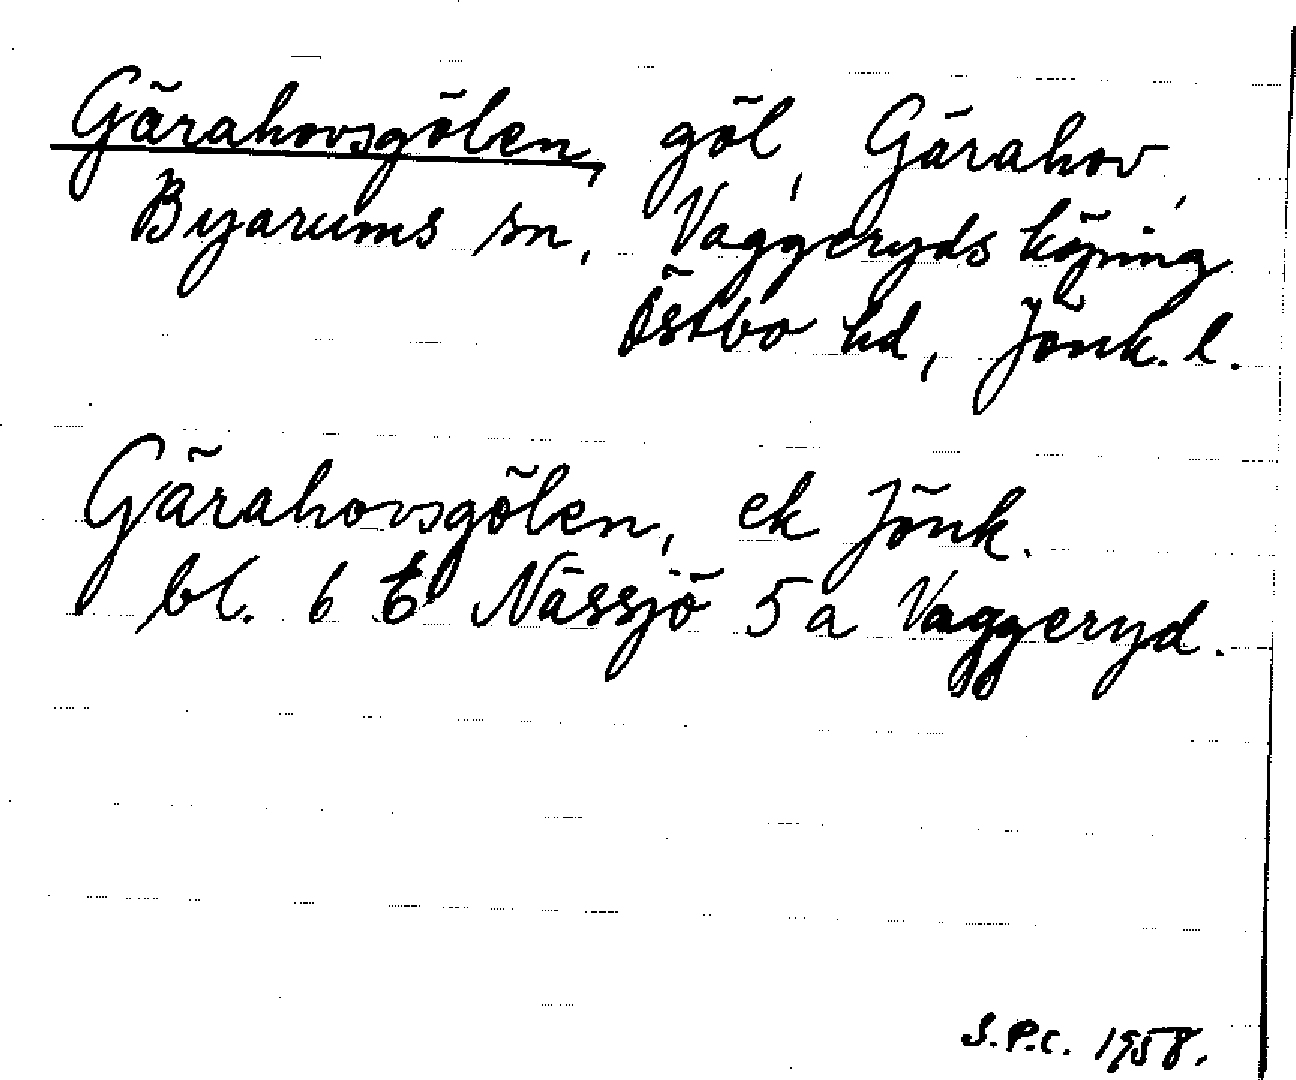 Gärahovsgölen, göl, Gärahov,
Byarums sn, Vaggeryds köping
Östbo hd, Jönk. l.
Gärahovsgölen, ek Jönk.
bl. 6 t Nässjö 5 a Vaggeryd.
S.P.C. 1958.